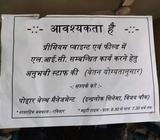 -: आवश्यकता है :-
प्रीमियम प्वाइन्ट एवं फील्ड में
एल.आई.सी. सम्बन्धित कार्य करने हेतु
अनुभवी स्टाफ की (वेतन योग्यतानुसार)
सम्पर्क करें
पोद्दार वेल्थ मैनेजमेन्ट (इन्द्रलोक सिनेमा, विजय चौक)
साप्ताहिक अवकाश - रविवार